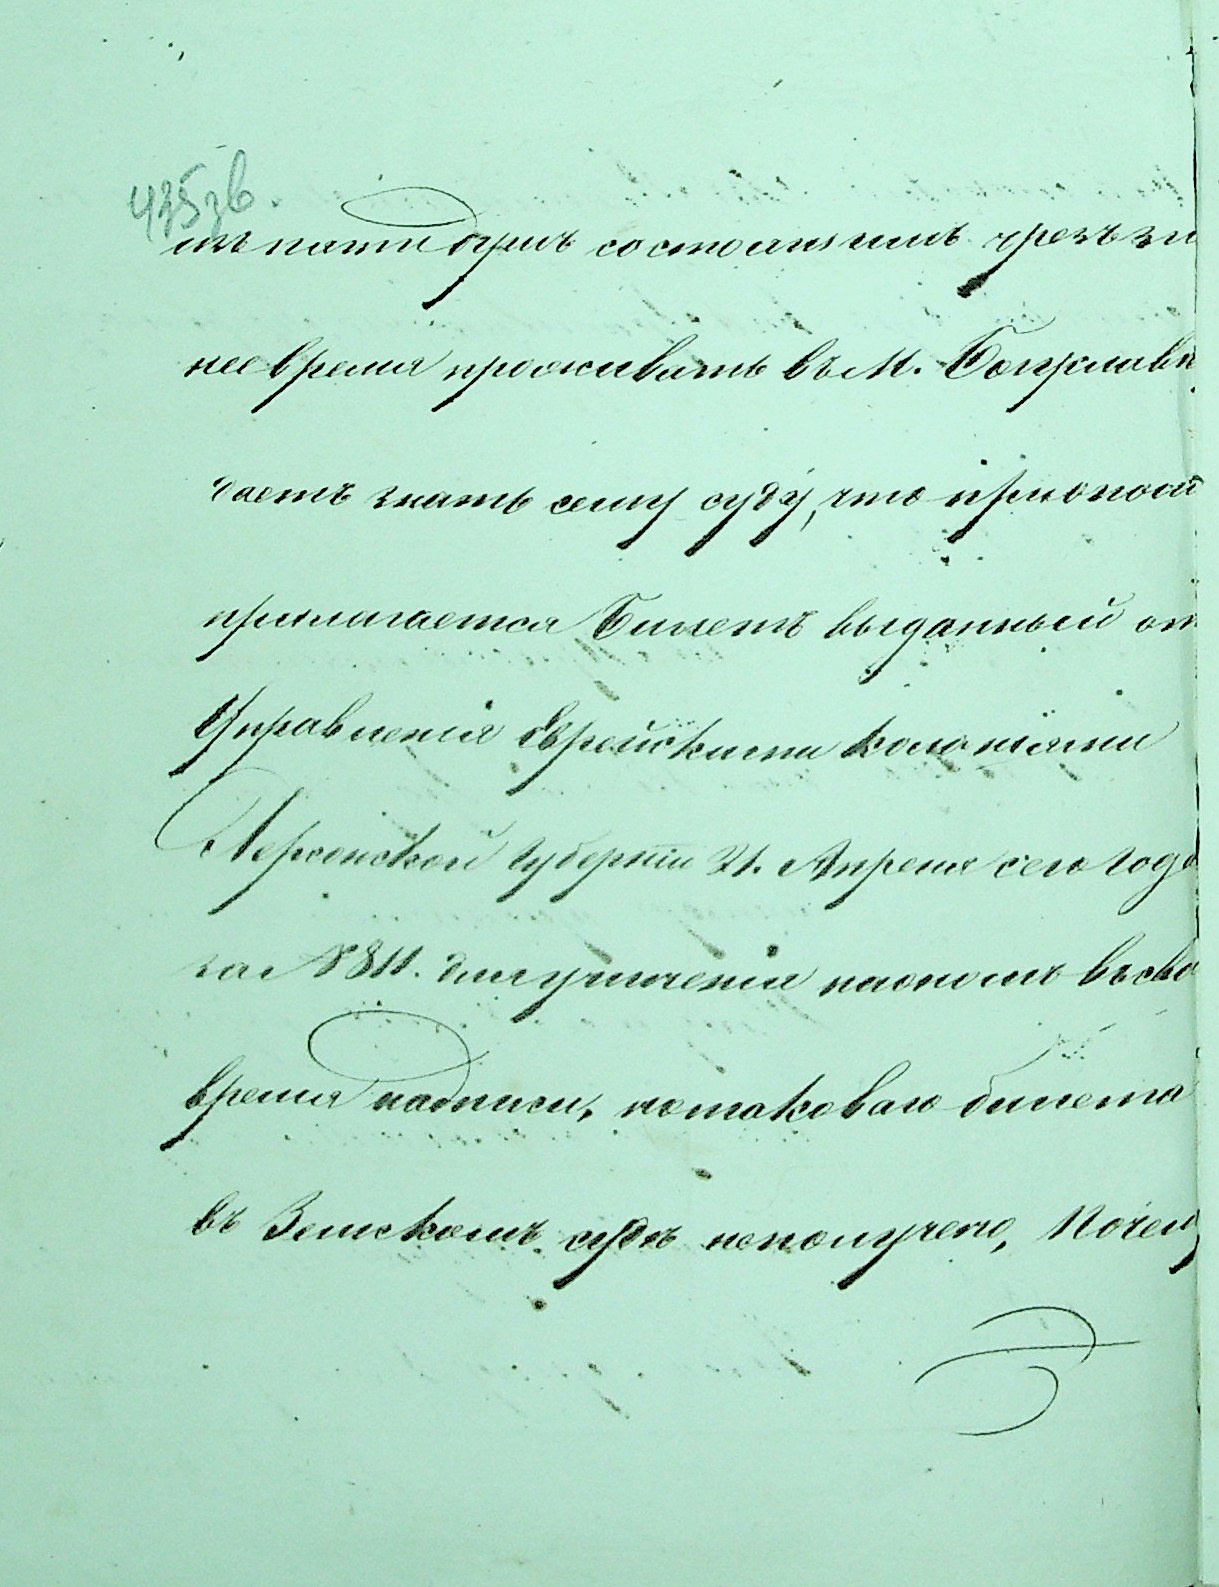 435 зв.
изъ пяти душъ состоящимъ чрезъ зи
нее время проживать въ М. Богуславѣ
даетъ знать сему суду, что при оной
прилагается Билетъ выданный от
Управленія Еврейскими колоніями
Херсонской Губерніи 21. Апреля сего года
за № 811. для учиненія на ономъ въ сво
время надписи, но таковаго билета
въ Земскомъ судѣ неполучено, Почему